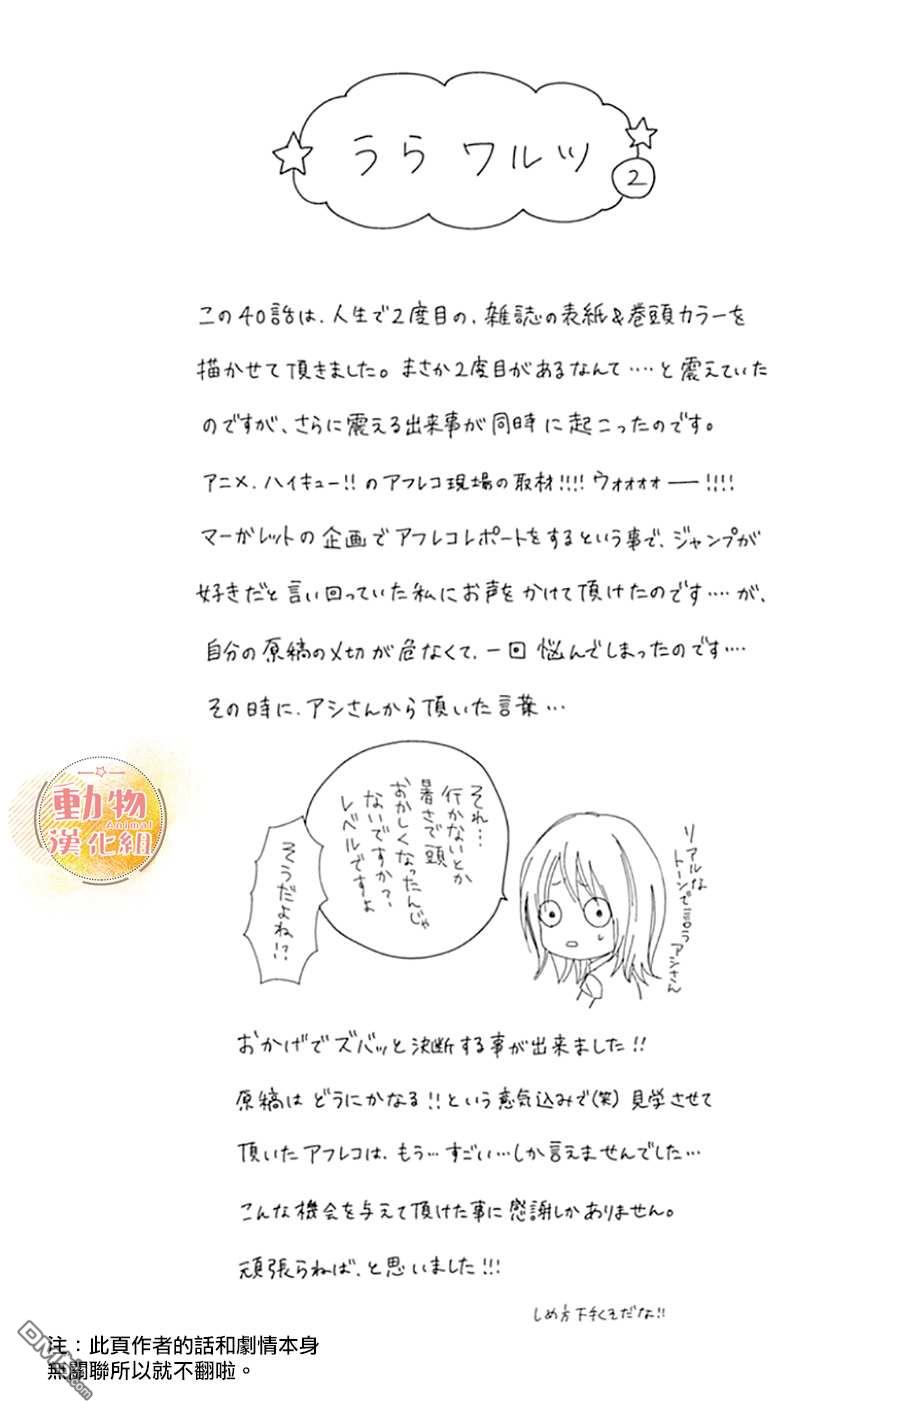 うらワルツ
2
この40話は、人生で2度目の、雑誌の表紙&巻頭カラーを
描かせて頂きました。まさか2度目があるなんて‥‥と震えていた
のですが、さらに震える出来事が同時に起こったのです。
アニメ、ハイキュー!!のアフレコ現場の取材!!!!ウォォォォー!!!!
マーガレットの企画でアフレコレポートをするという事で、ジャンプが
好きだと言い回っていた私にお声をかけて頂けたのです‥‥が、
自分の原稿の〆切が危なくて、一回悩んでしまったのです‥‥
その時に、アシさんから頂いた言葉…
それ…
行かないとか
暑さで頭
おかしくなったんじゃ
ないですか?
レベルですよ
そうだよね!?
リアルな
トーンで言うアシさん
動物
Animal
漢化組
おかげでズバッと決断する事が出来ました!!
原稿はどうにかなる!!という意気込みで(笑)見学させて
頂いたアフレコは、もう…すごい…しか言えませんでした…
こんな機会を与えて頂けた事に感謝しかありません。
頑張らねば、と思いました!!!
しめ方下手くそだな!!
注：此頁作者的話和劇情本身
無關聯所以就不翻啦。